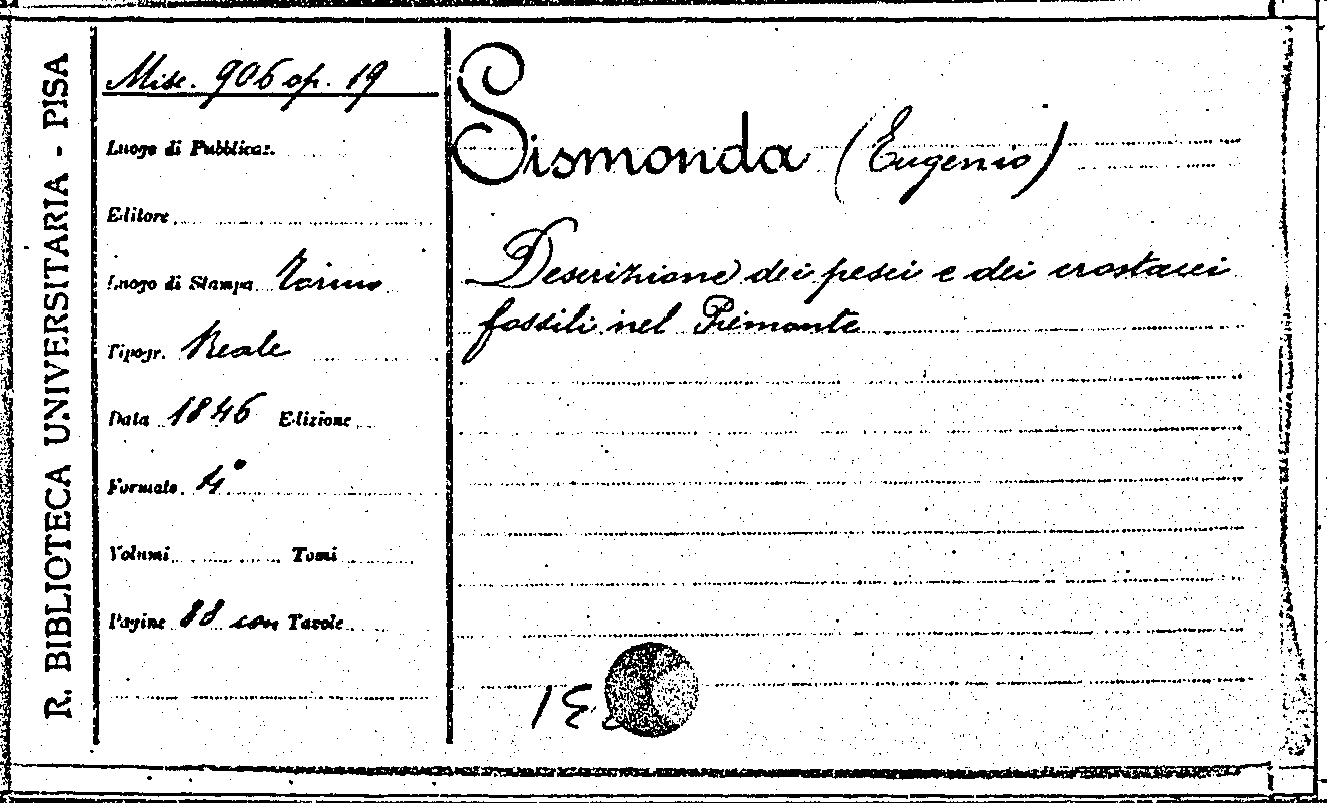 R. BIBLIOTECA UNIVERSITARIA - PISA
Misc. 906 op. 19
Luogo di Pubblicaz.
Editore
Luogo di Stampa Torino
Tipogr. Reale
Data 1846 Edizione
Formato 4°
Volumi Tomi
Pagine 88 con Tavole
Sismonda (Eugenio)
Descrizione dei pesci e dei crostacei
fossili nel Piemonte